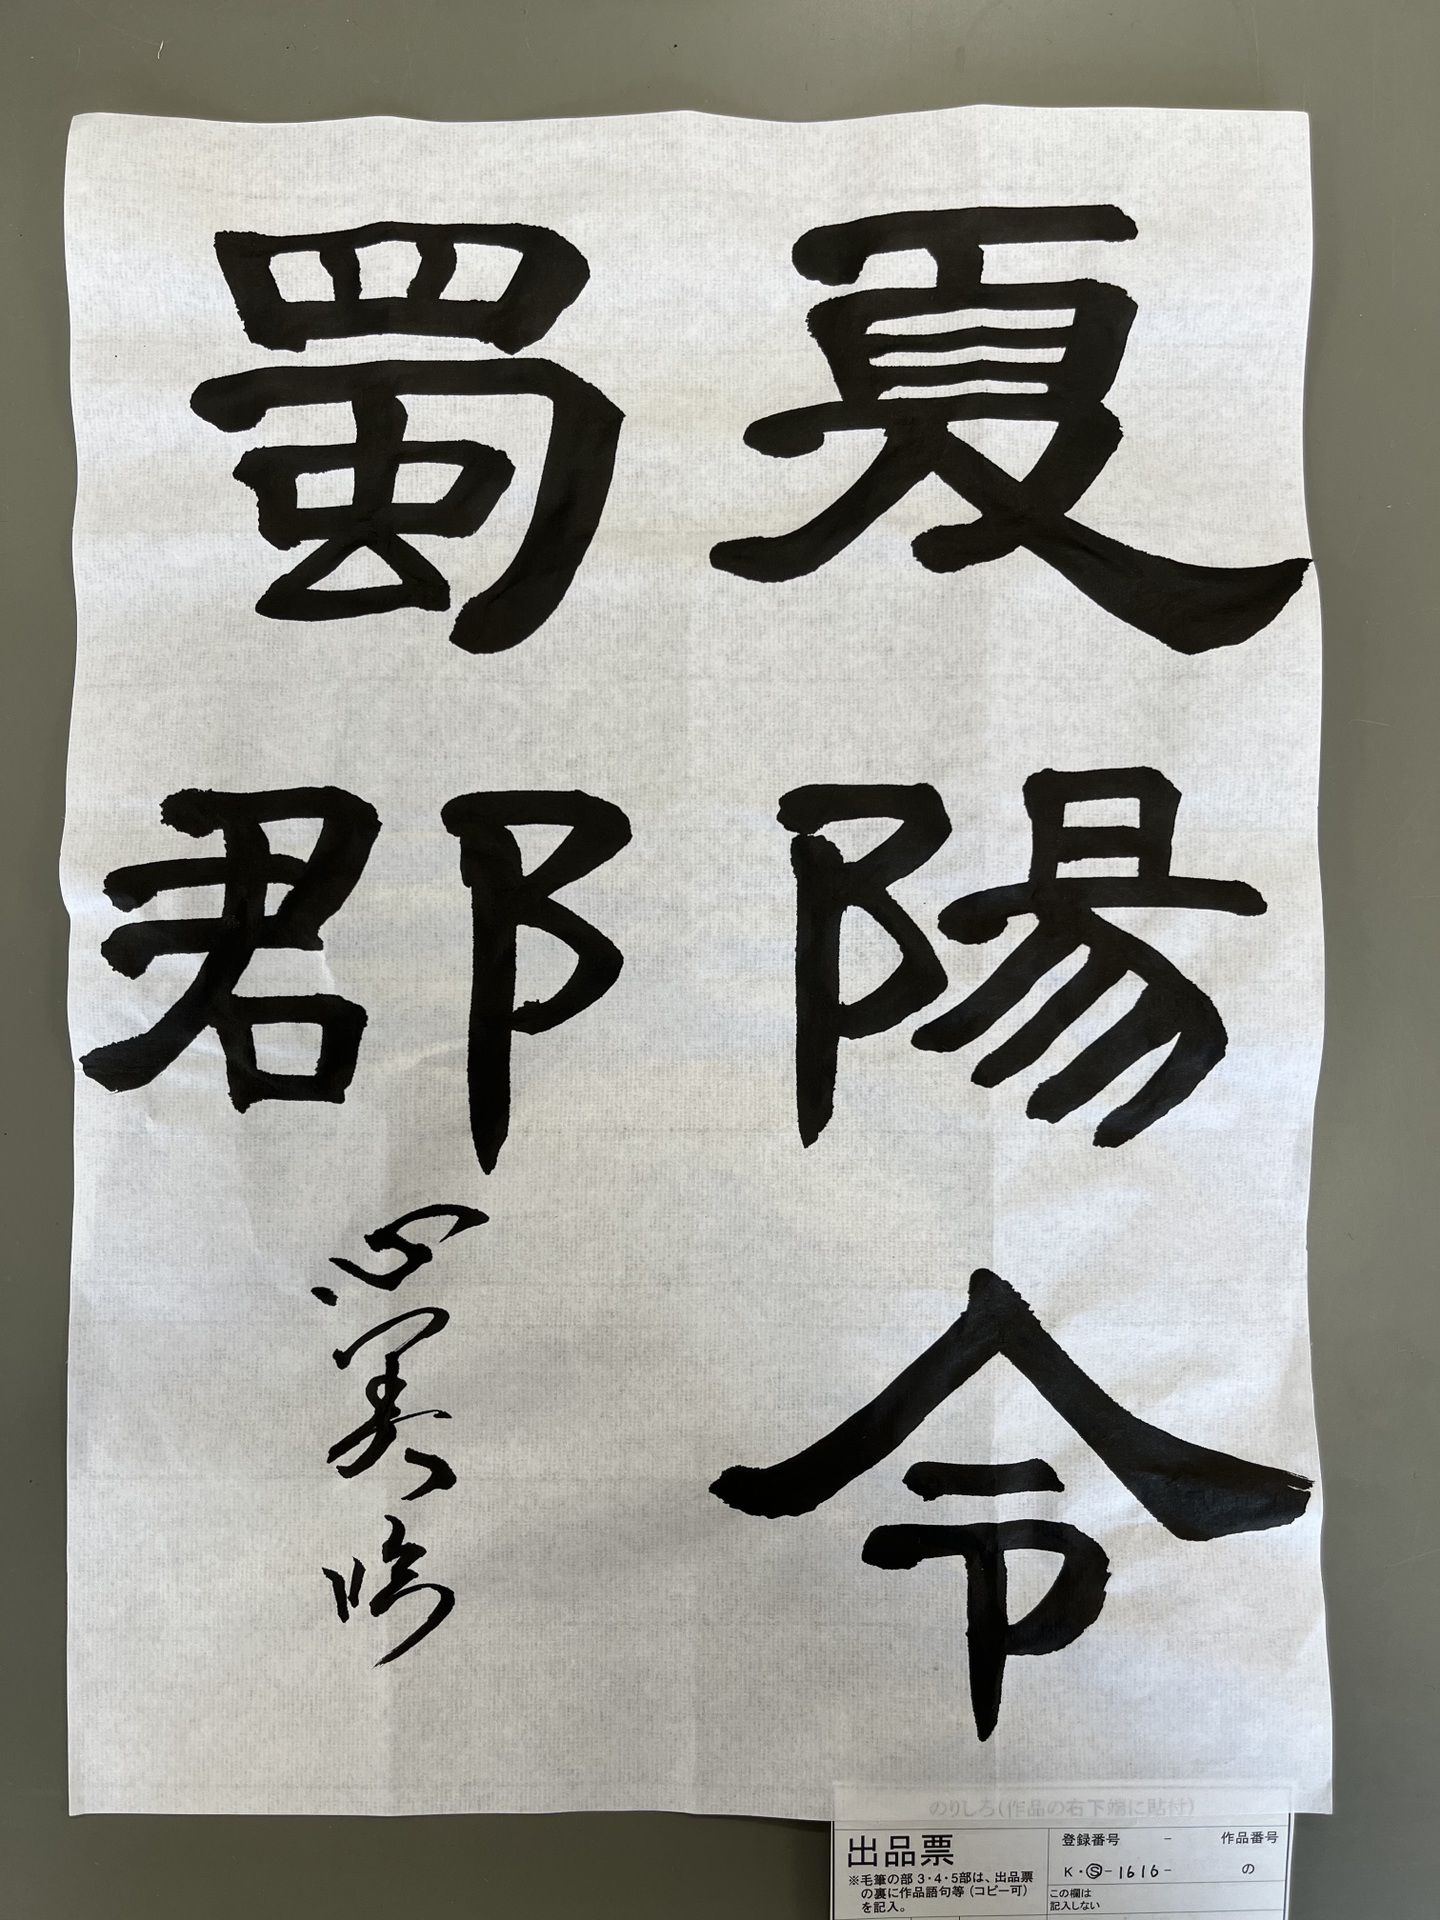 夏陽令
蜀郡
心美臨
のりしろ(作品の右下端に貼付)
出品票
※毛筆の部 3・4・5部は、出品票
の裏に作品語句等(コピー可)
を記入。
登録番号 - 作品番号
K・Ⓢ-1616- の
この欄は
記入しない